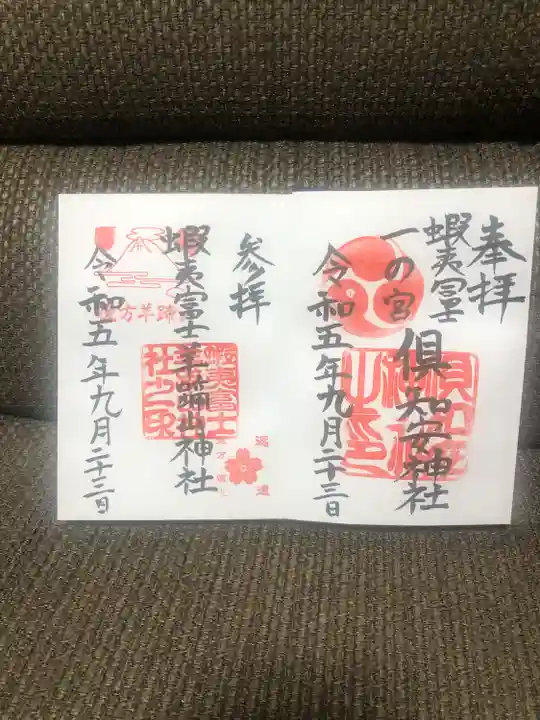 奉拝
蝦夷富士
一の宮
倶知安神社
令和五年九月二十三日
参拝
蝦夷富士羊蹄山神社
令和五年九月二十三日